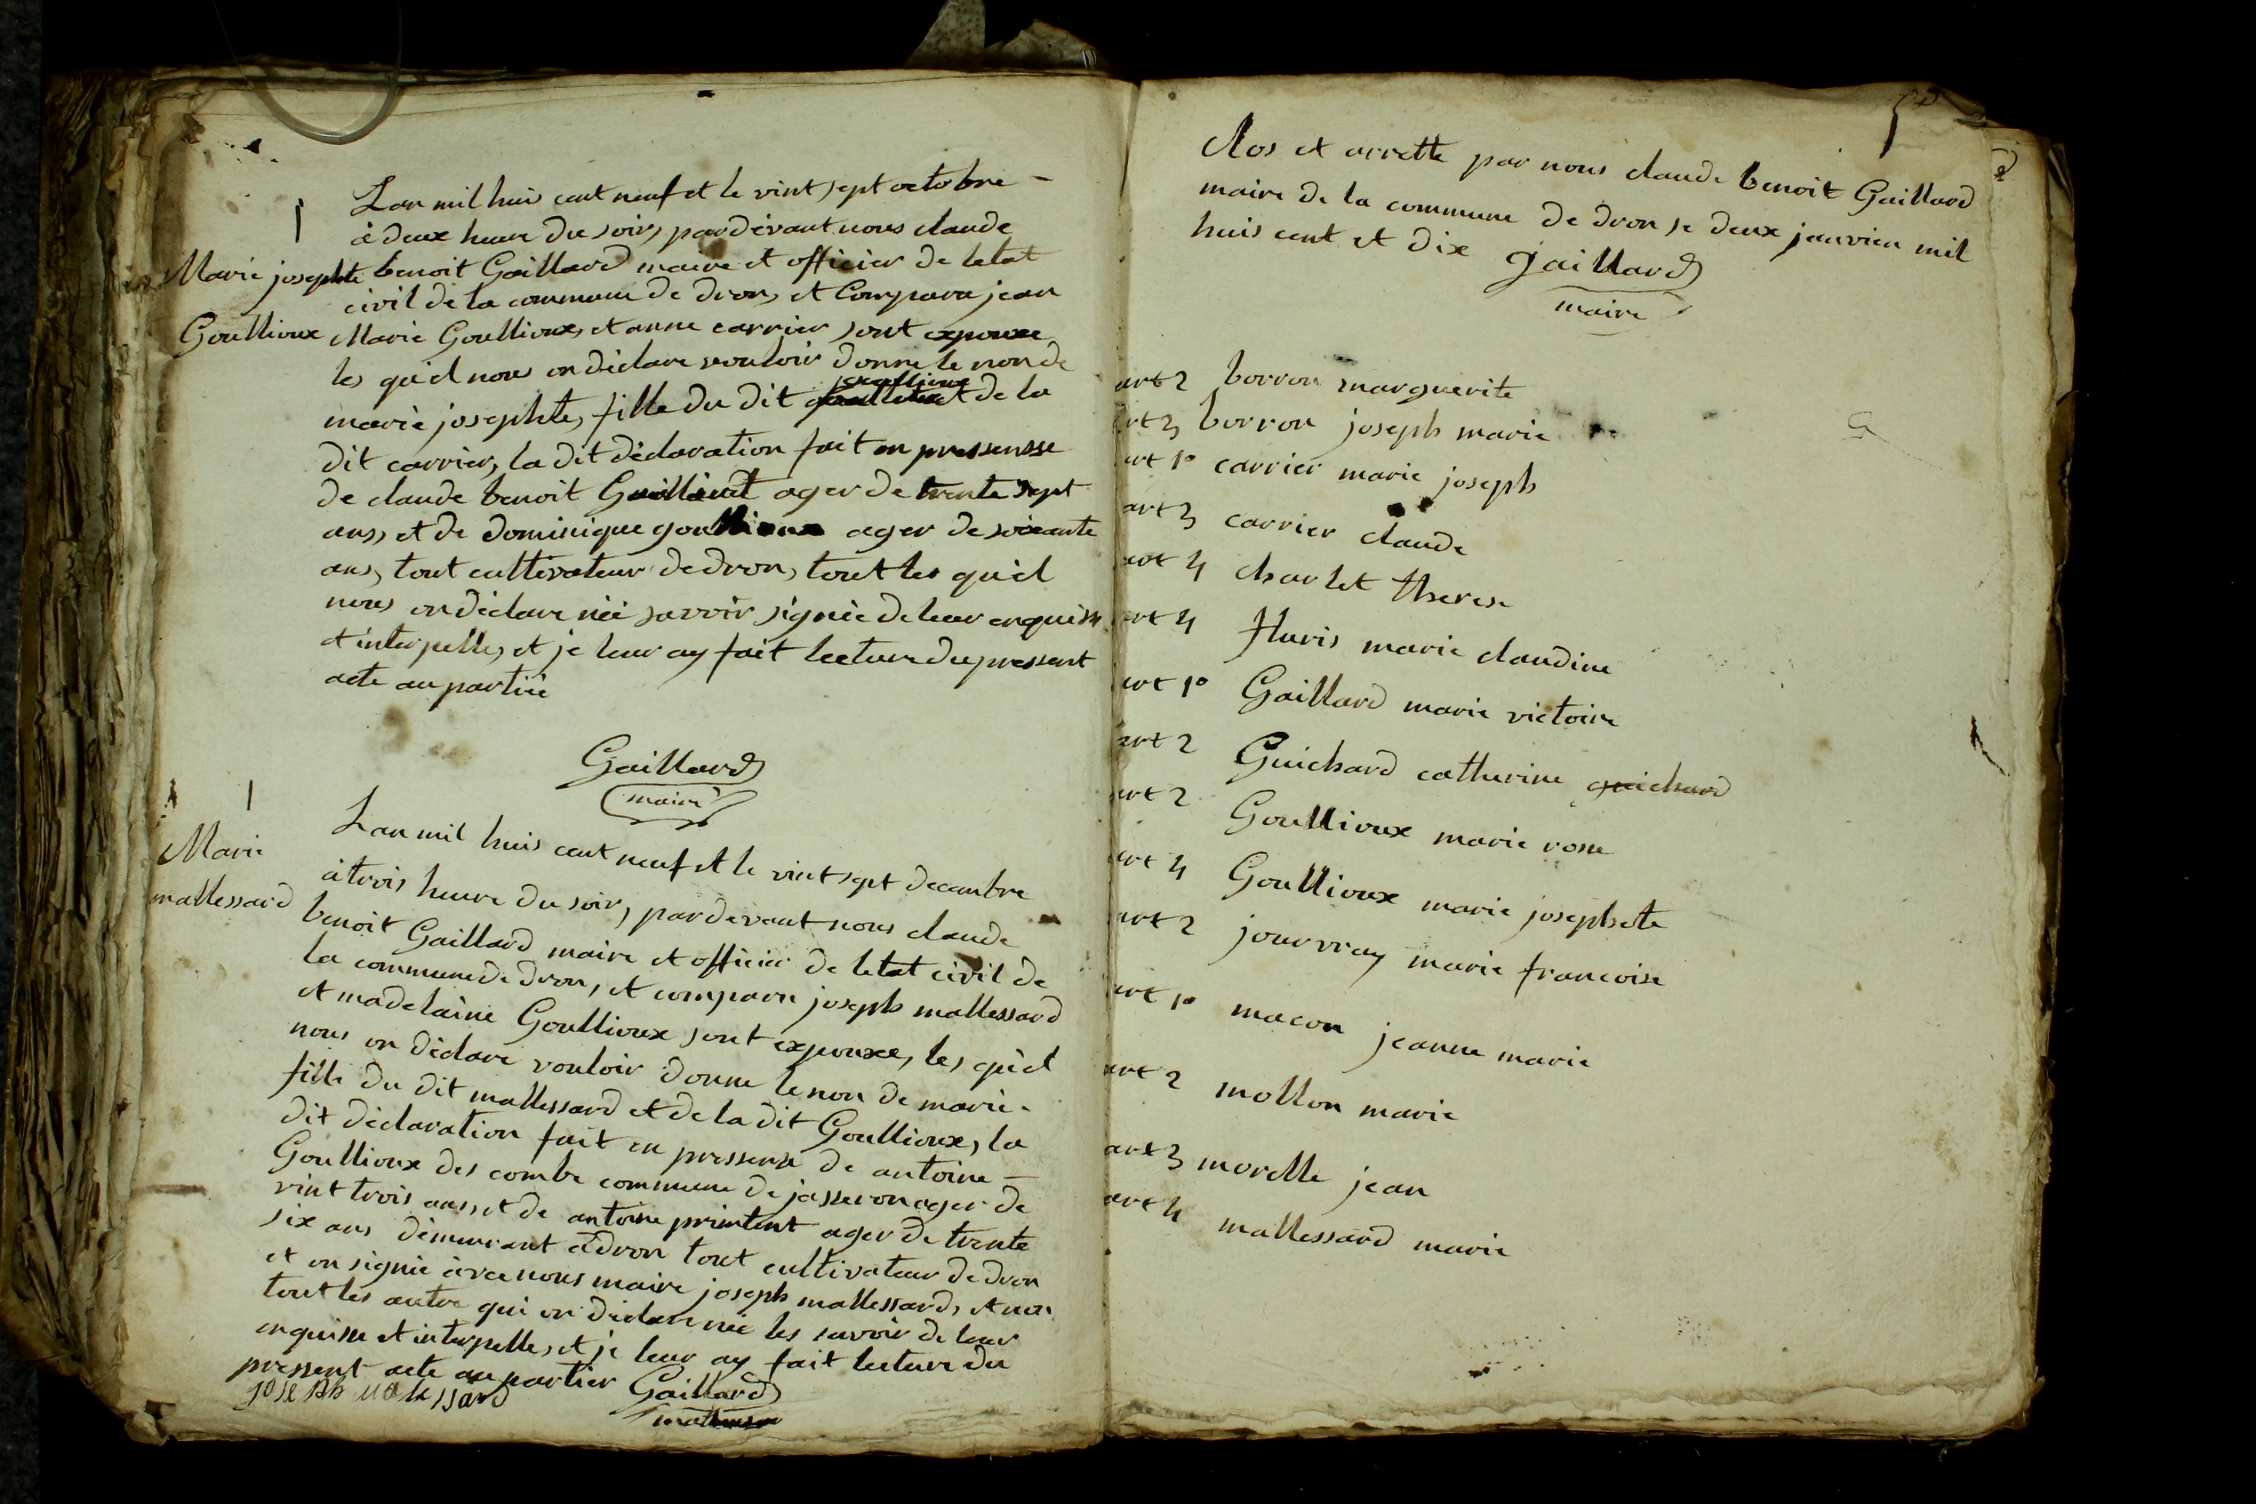 1
Marie josephte
Goullioux
Lan mil huis cent neuf et le vint sept octobre
à deux heure du soir, pardevant nous claude
benoit Gaillard maire et officier de letat
civil de la commune de dron, et Comparu jean
Marie Goullioux, et anne carrier sont expouxe
les quel nous on déclare vouloir donne le non de
marie josephte, fille du dit goullioux et de la
dit carrier, la dit déclaration fait en pressensse
de claude benoit ager de trente sept
ans, et de dominique goullioux ager de soixante
ans, tout cultivateur de dron, tout les quel
nous on déclare née savoir signée de leur enquisse
et interpelle, et je leur ay fait lecture du pressent
acte au partiè
Gaillard
maire
1
Marie
mallessard
Lan mil huis cent neuf et le vint sept decembre
à trois heure du soir, pardevant nous claude
benoit Gaillard maire et officier de letat civil de
la commune de dron, et comparu joseph mallessard
et madelaine Goullioux sont expouxe, les quel
nous on déclare vouloir donne le non de marie
fille du dit mallessard et de la dit Goullioux, la
dit déclaration fait en pressense de antoine
Goullioux des combe commune de jasseron ager de
vint trois ans, et de antoine printent ager de trente
six ans démeurant à dron tout cultivateur de dron
et on signie avec nous maire joseph mallessard, et non
tout les autre qui on déclare née les savoir de leur
enquisse et interpelle, et je leur ay fait lecture du
pressent acte au partier Gaillard
joseph malessard
5
Clos et arrette par nous claude benoit Gaillard
maire de la commune de dron le deux janvier mil
huis cent et dix Gaillard
maire
art 2 borron marguerite
art 3 borron joseph marie
art 1º carrier marie joseph
art 3 carrier claude
art 4 charlet therese
art 4 fluris marie claudine
art 1º Gaillard marie victoire
art 2 Guichard catherine guichard
art 2 Goullioux marie rose
art 4 Goullioux marie josephete
art 2 jourvray marie francoise
art 1º macon jeanne marie
art 2 mollon marie
art 3 morelle jean
art 4 mallessard marie